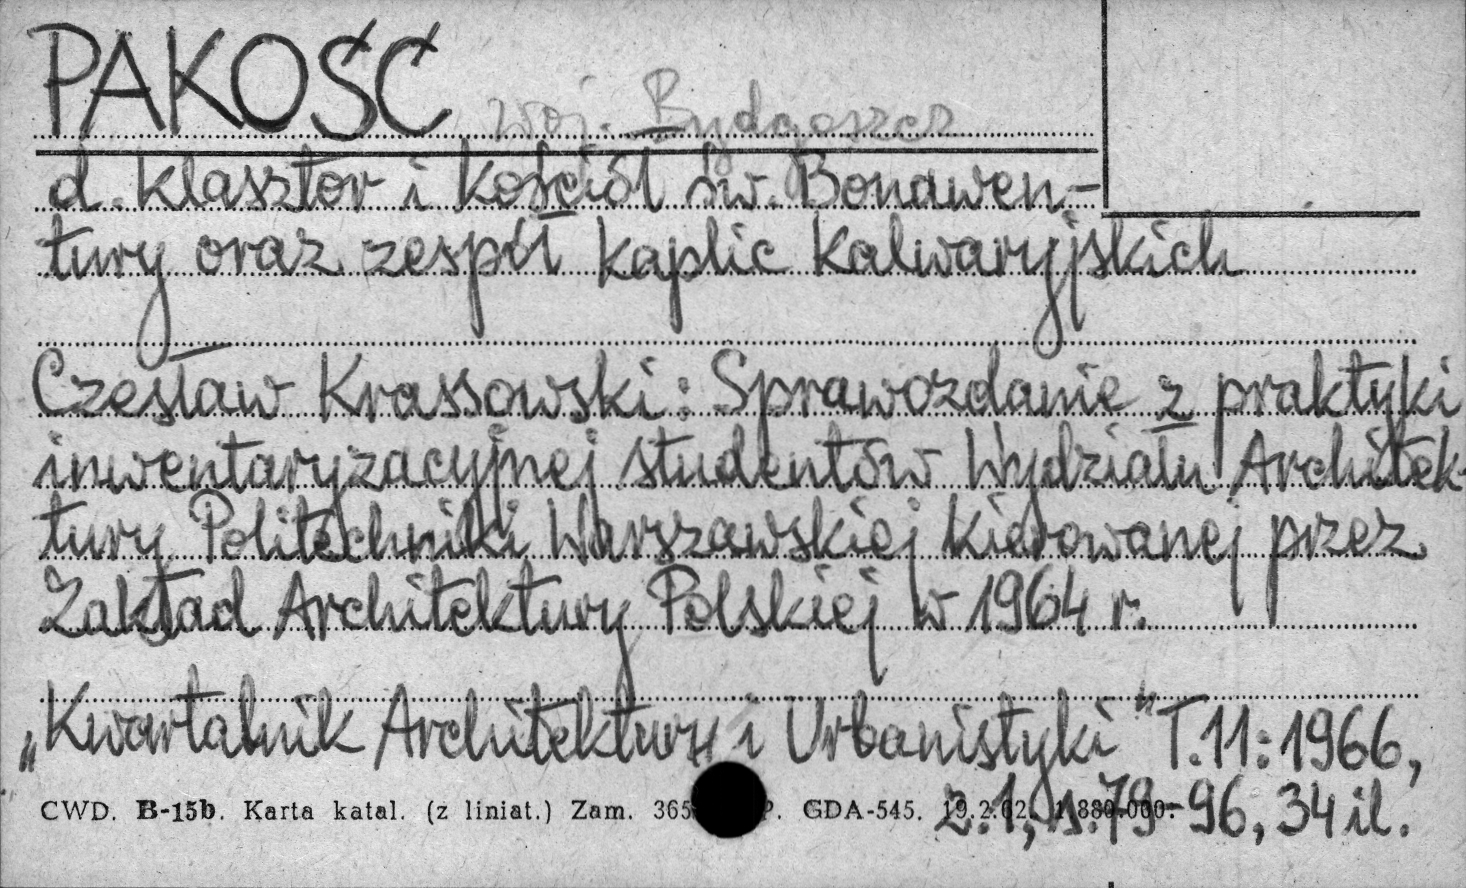 PAKOŚĆ woj. Bydgoszcz
d. klasztor i kościół św. Bonawen-
tury oraz zespół kaplic Kalwaryjskich
Czesław Krassowski: Sprawozdanie z praktyki
inwentaryzacyjnej studentów Wydziału Architek-
tury Politechniki Warszawskiej kierowanej przez
Zakład Architektury Polskiej w 1964 r.
„Kwartalnik Architektury i Urbanistyki" T.11:1966,
z.1, s.79-96, 34 il.
CWD. B-15b. Karta katal. (z liniat.) Zam. 365 P. GDA-545. 19.2.62. 1.880.000.